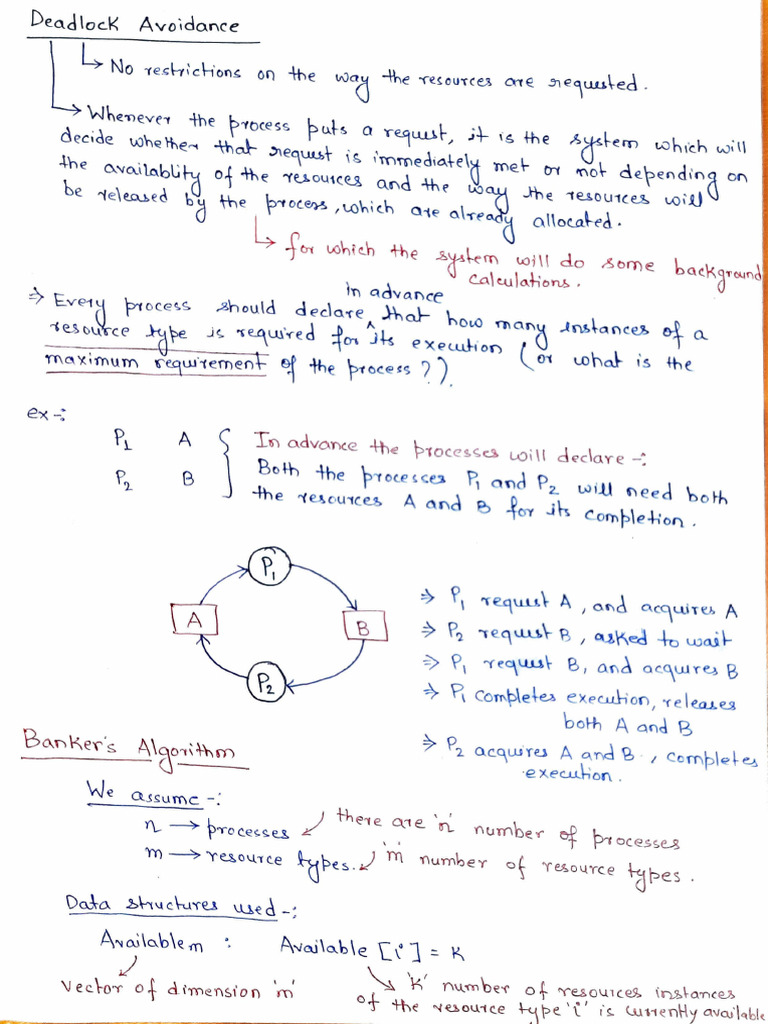 Deadlock Avoidance
↳ No restrictions on the way the resources are requested.
→ Whenever the process puts a request, it is the system which will
decide whether that request is immediately met or not depending on
the availablity of the resources and the way the resources will
be released by the process, which are already allocated.
↳ for which the system will do some background
calculations.
in advance
⇒ Every process should declare ^ that how many instances of a
resource type is required for its execution (or what is the
maximum requirement of the process?).
ex-:
P1 A { In advance the processes will declare -:
P2 B Both the processes P1 and P2 will need both
the resources A and B for its completion.
P1
A
B
P2
⇒ P1 request A, and acquires A
⇒ P2 request B, asked to wait
⇒ P1 request B, and acquires B
⇒ P1 completes execution, releases
both A and B
⇒ P2 acquires A and B, completes
execution.
Banker's Algorithm
We assume -:
n → processes there are 'n' number of processes
m → resource types. 'm' number of resource types.
Data structures used -:
Available m : Available [i] = K
vector of dimension 'm' 'K' number of resources instances
of the resource type 'i' is currently available